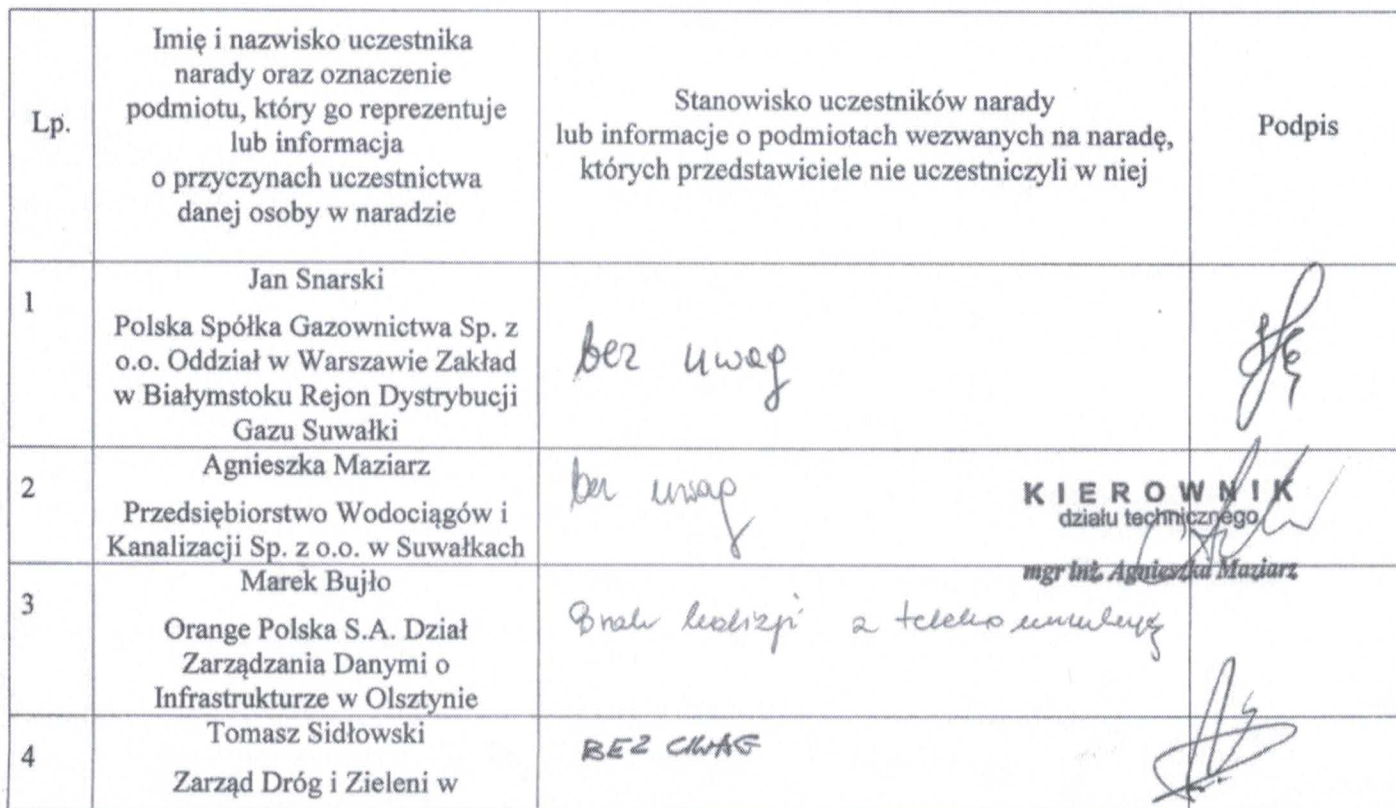 Lp.
Imię i nazwisko uczestnika
narady oraz oznaczenie
podmiotu, który go reprezentuje
lub informacja
o przyczynach uczestnictwa
danej osoby w naradzie
Stanowisko uczestników narady
lub informacje o podmiotach wezwanych na naradę,
których przedstawiciele nie uczestniczyli w niej
Podpis
1
Jan Snarski
Polska Spółka Gazownictwa Sp. z
o.o. Oddział w Warszawie Zakład
w Białymstoku Rejon Dystrybucji
Gazu Suwałki
bez uwag
2
Agnieszka Maziarz
Przedsiębiorstwo Wodociągów i
Kanalizacji Sp. z o.o. w Suwałkach
bez uwag
KIEROWNIK
działu technicznego
mgr inż. Agnieszka Maziarz
3
Marek Bujło
Orange Polska S.A. Dział
Zarządzania Danymi o
Infrastrukturze w Olsztynie
Brak kolizji z
4
Tomasz Sidłowski
Zarząd Dróg i Zieleni w
BEZ UWAG